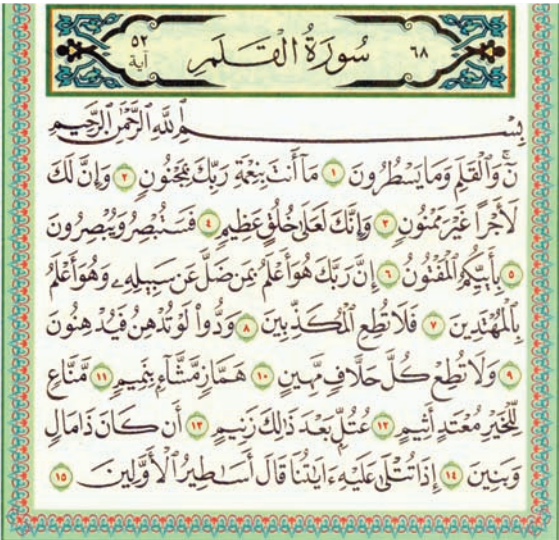 ٦٨ سُورَةُ الْقَلَمِ ٥٢ آية
بِسْمِ ٱللَّهِ ٱلرَّحْمَٰنِ ٱلرَّحِيمِ
نٓ ۚ وَٱلْقَلَمِ وَمَا يَسْطُرُونَ ١ مَآ أَنتَ بِنِعْمَةِ رَبِّكَ بِمَجْنُونٍ ٢ وَإِنَّ لَكَ
لَأَجْرًا غَيْرَ مَمْنُونٍ ٣ وَإِنَّكَ لَعَلَىٰ خُلُقٍ عَظِيمٍ ٤ فَسَتُبْصِرُ وَيُبْصِرُونَ
٥ بِأَييِّكُمُ ٱلْمَفْتُونُ ٦ إِنَّ رَبَّكَ هُوَ أَعْلَمُ بِمَن ضَلَّ عَن سَبِيلِهِۦ وَهُوَ أَعْلَمُ
بِٱلْمُهْتَدِينَ ٧ فَلَا تُطِعِ ٱلْمُكَذِّبِينَ ٨ وَدُّوا۟ لَوْ تُدْهِنُ فَيُدْهِنُونَ
٩ وَلَا تُطِعْ كُلَّ حَلَّافٍ مَّهِينٍ ١٠ هَمَّازٍ مَّشَّآءٍۭ بِنَمِيمٍ ١١ مَّنَّاعٍ
لِّلْخَيْرِ مُعْتَدٍ أَثِيمٍ ١٢ عُتُلٍّۭ بَعْدَ ذَٰلِكَ زَنِيمٍ ١٣ أَن كَانَ ذَا مَالٍ
وَبَنِينَ ١٤ إِذَا تُتْلَىٰ عَلَيْهِ ءَايَٰتُنَا قَالَ أَسَٰطِيرُ ٱلْأَوَّلِينَ ١٥